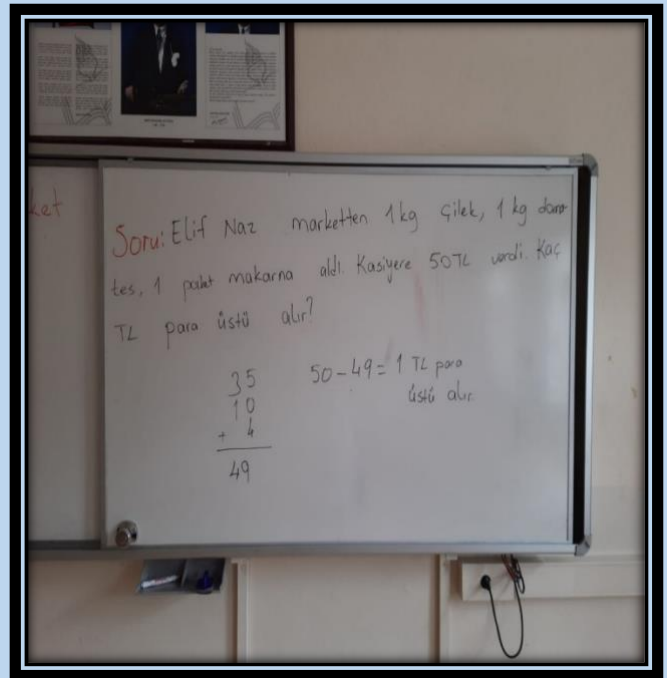 ket
Soru: Elif Naz marketten 1kg çilek, 1 kg doma
tes, 1 paket makarna aldı. Kasiyere 50TL verdi. Kaç
TL para üstü alır?
35
10
+ 4
49
50-49= 1 TL para
üstü alır.